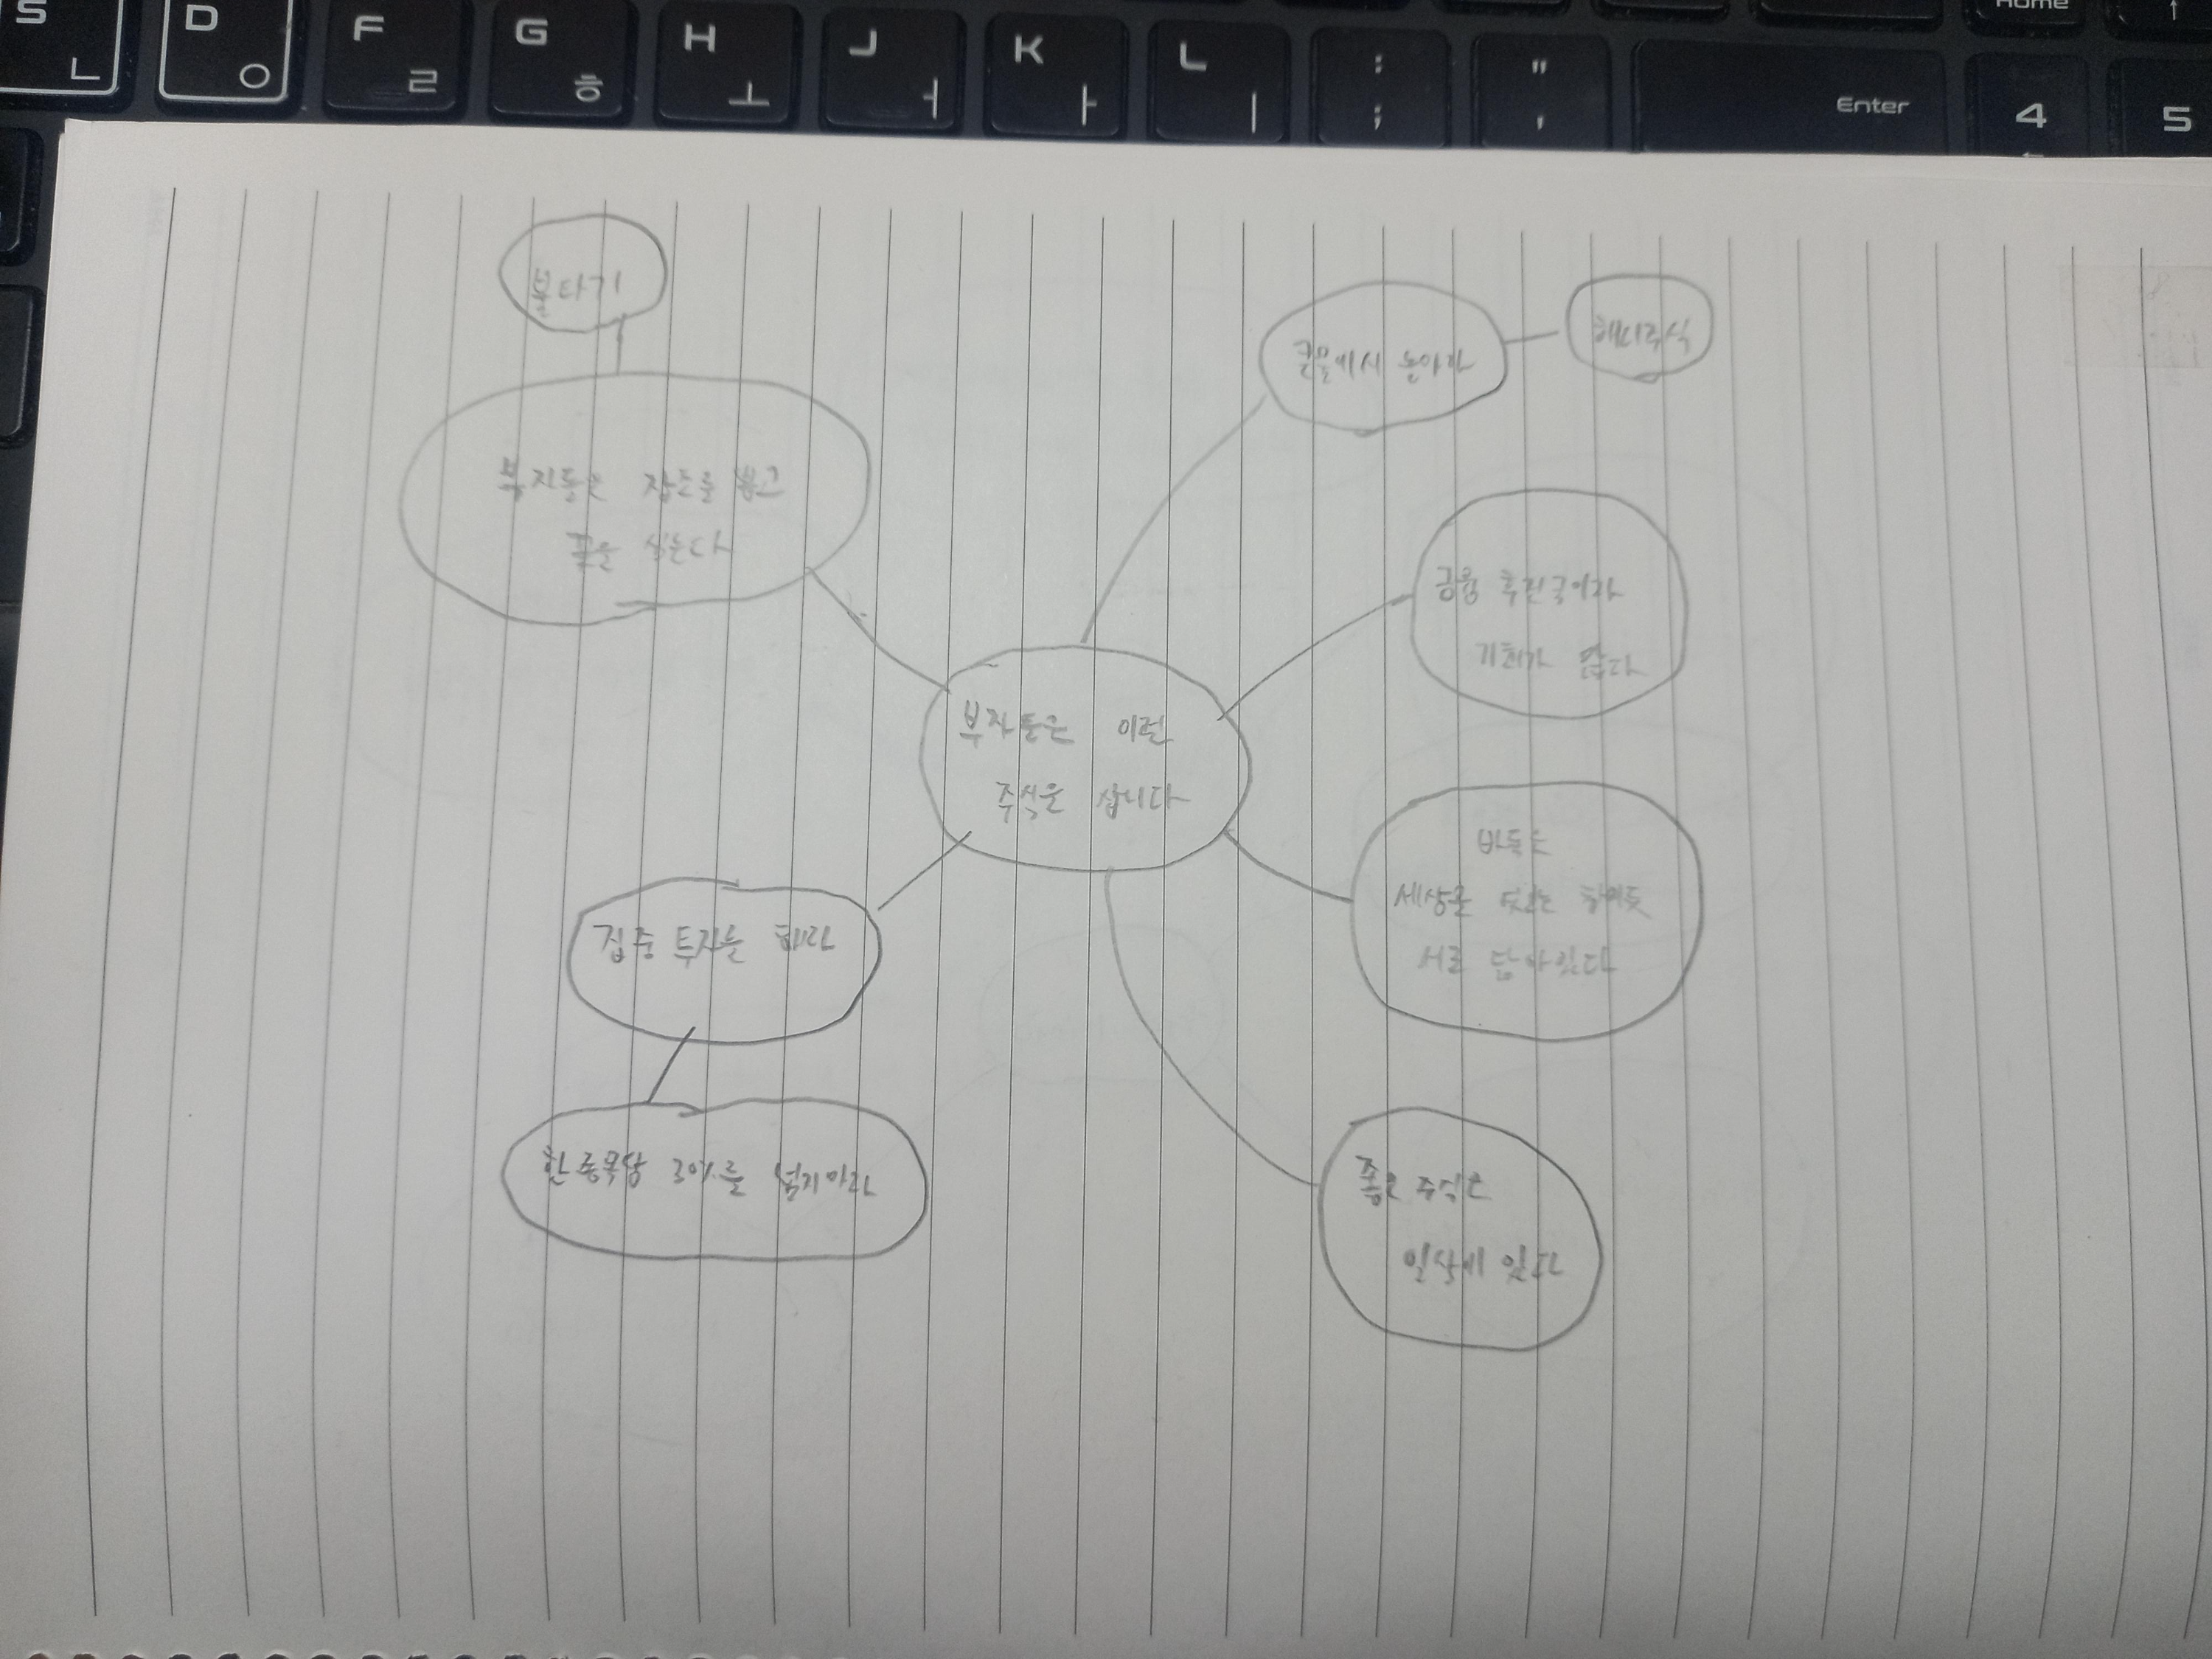 S ㄴ
D ㅇ
F ㄹ
G ㅎ
H ㅗ
J ㅓ
K ㅏ
L ㅣ
: ;
" '
Enter
Home
4
5
불타기
부자들은 잡초를 뽑고
꽃을 심는다
큰물에서 놀아라
해외주식
금융 후진국이라
기회가 많다
부자들은 이런
주식을 삽니다
바둑은
세상을
서로 닮아있다
집중 투자를 해라
한 종목당 30%를 넘지마라
좋은 주식은
일상에 있다